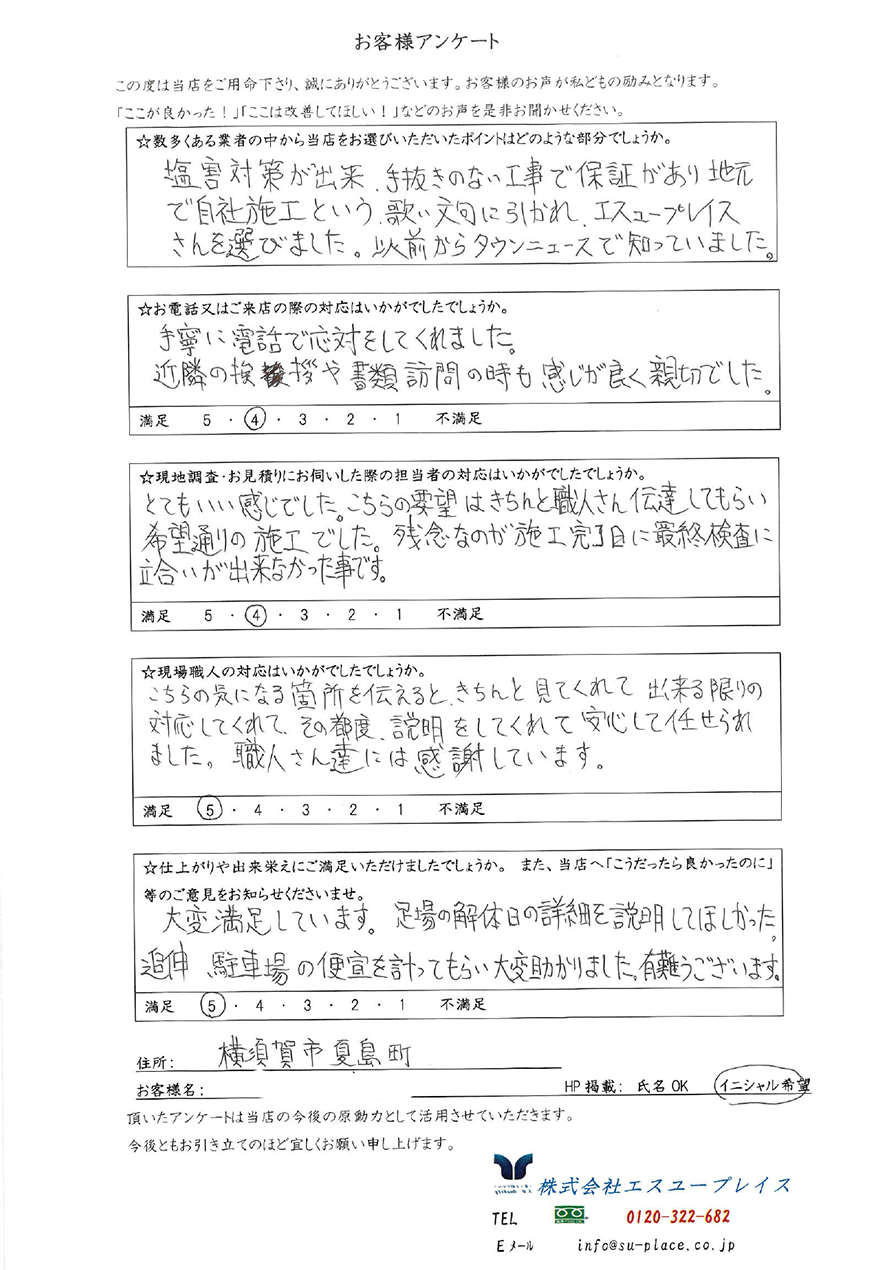 お客様アンケート
この度は当店をご用命下さり、誠にありがとうございます。お客様のお声が私どもの励みとなります。
「ここが良かった！」「ここは改善してほしい！」などのお声を是非お聞かせください。
☆数多くある業者の中から当店をお選びいただいたポイントはどのような部分でしょうか。
塩害対策が出来、手抜きのない工事で保証があり地元
で自社施工という、歌い文句に引かれ、エスユープレイス
さんを選びました。以前からタウンニュースで知っていました。
☆お電話又はご来店の際の対応はいかがでしたでしょうか。
丁寧に電話で応対をしてくれました。
近隣の挨拶や書類訪問の時も感じが良く親切でした。
満足 5 ・ 4 ・ 3 ・ 2 ・ 1 不満足
☆現地調査・お見積りにお伺いした際の担当者の対応はいかがでしたでしょうか。
とてもいい感じでした。こちらの要望はきちんと職人さん伝達してもらい
希望通りの施工でした。残念なのが施工完了日に最終検査に
立合いが出来なかった事です。
満足 5 ・ 4 ・ 3 ・ 2 ・ 1 不満足
☆現場職人の対応はいかがでしたでしょうか。
こちらの気になる箇所を伝えると、きちんと見てくれて出来る限りの
対応してくれて、その都度、説明をしてくれて安心して任せられ
ました。職人さん達には感謝しています。
満足 5 ・ 4 ・ 3 ・ 2 ・ 1 不満足
☆仕上がりや出来栄えにご満足いただけましたでしょうか。 また、当店へ「こうだったら良かったのに」
等のご意見をお知らせくださいませ。
大変満足しています。足場の解体日の詳細を説明してほしかった。
追伸 駐車場の便宜を計ってもらい大変助かりました。有難うございます。
満足 5 ・ 4 ・ 3 ・ 2 ・ 1 不満足
住所： 横須賀市夏島町
お客様名： HP掲載： 氏名OK イニシャル希望
頂いたアンケートは当店の今後の原動力として活用させていただきます。
今後ともお引き立てのほど宜しくお願い申し上げます。
株式会社エスユープレイス
TEL 0120-322-682
Eメール info@su-place.co.jp